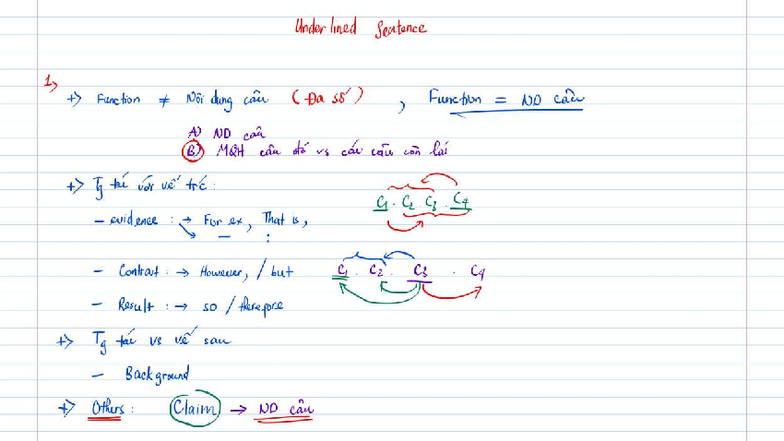 Underlined Sentence
1,
+) Function ≠ Nội dung câu (Đa số) , Function = ND câu
A) ND câu
B) MQH câu đó vs các câu còn lại
+) Tg tác với vế trc :
C1 . C2 C3 . C4
- evidence : → For ex , That is ,
— :
- Contrast : → However, / but C1 . C2 . C3 . C4
- Result : → so / therefore
+) Tg tác vs vế sau
- Background
+) Others : Claim → ND câu